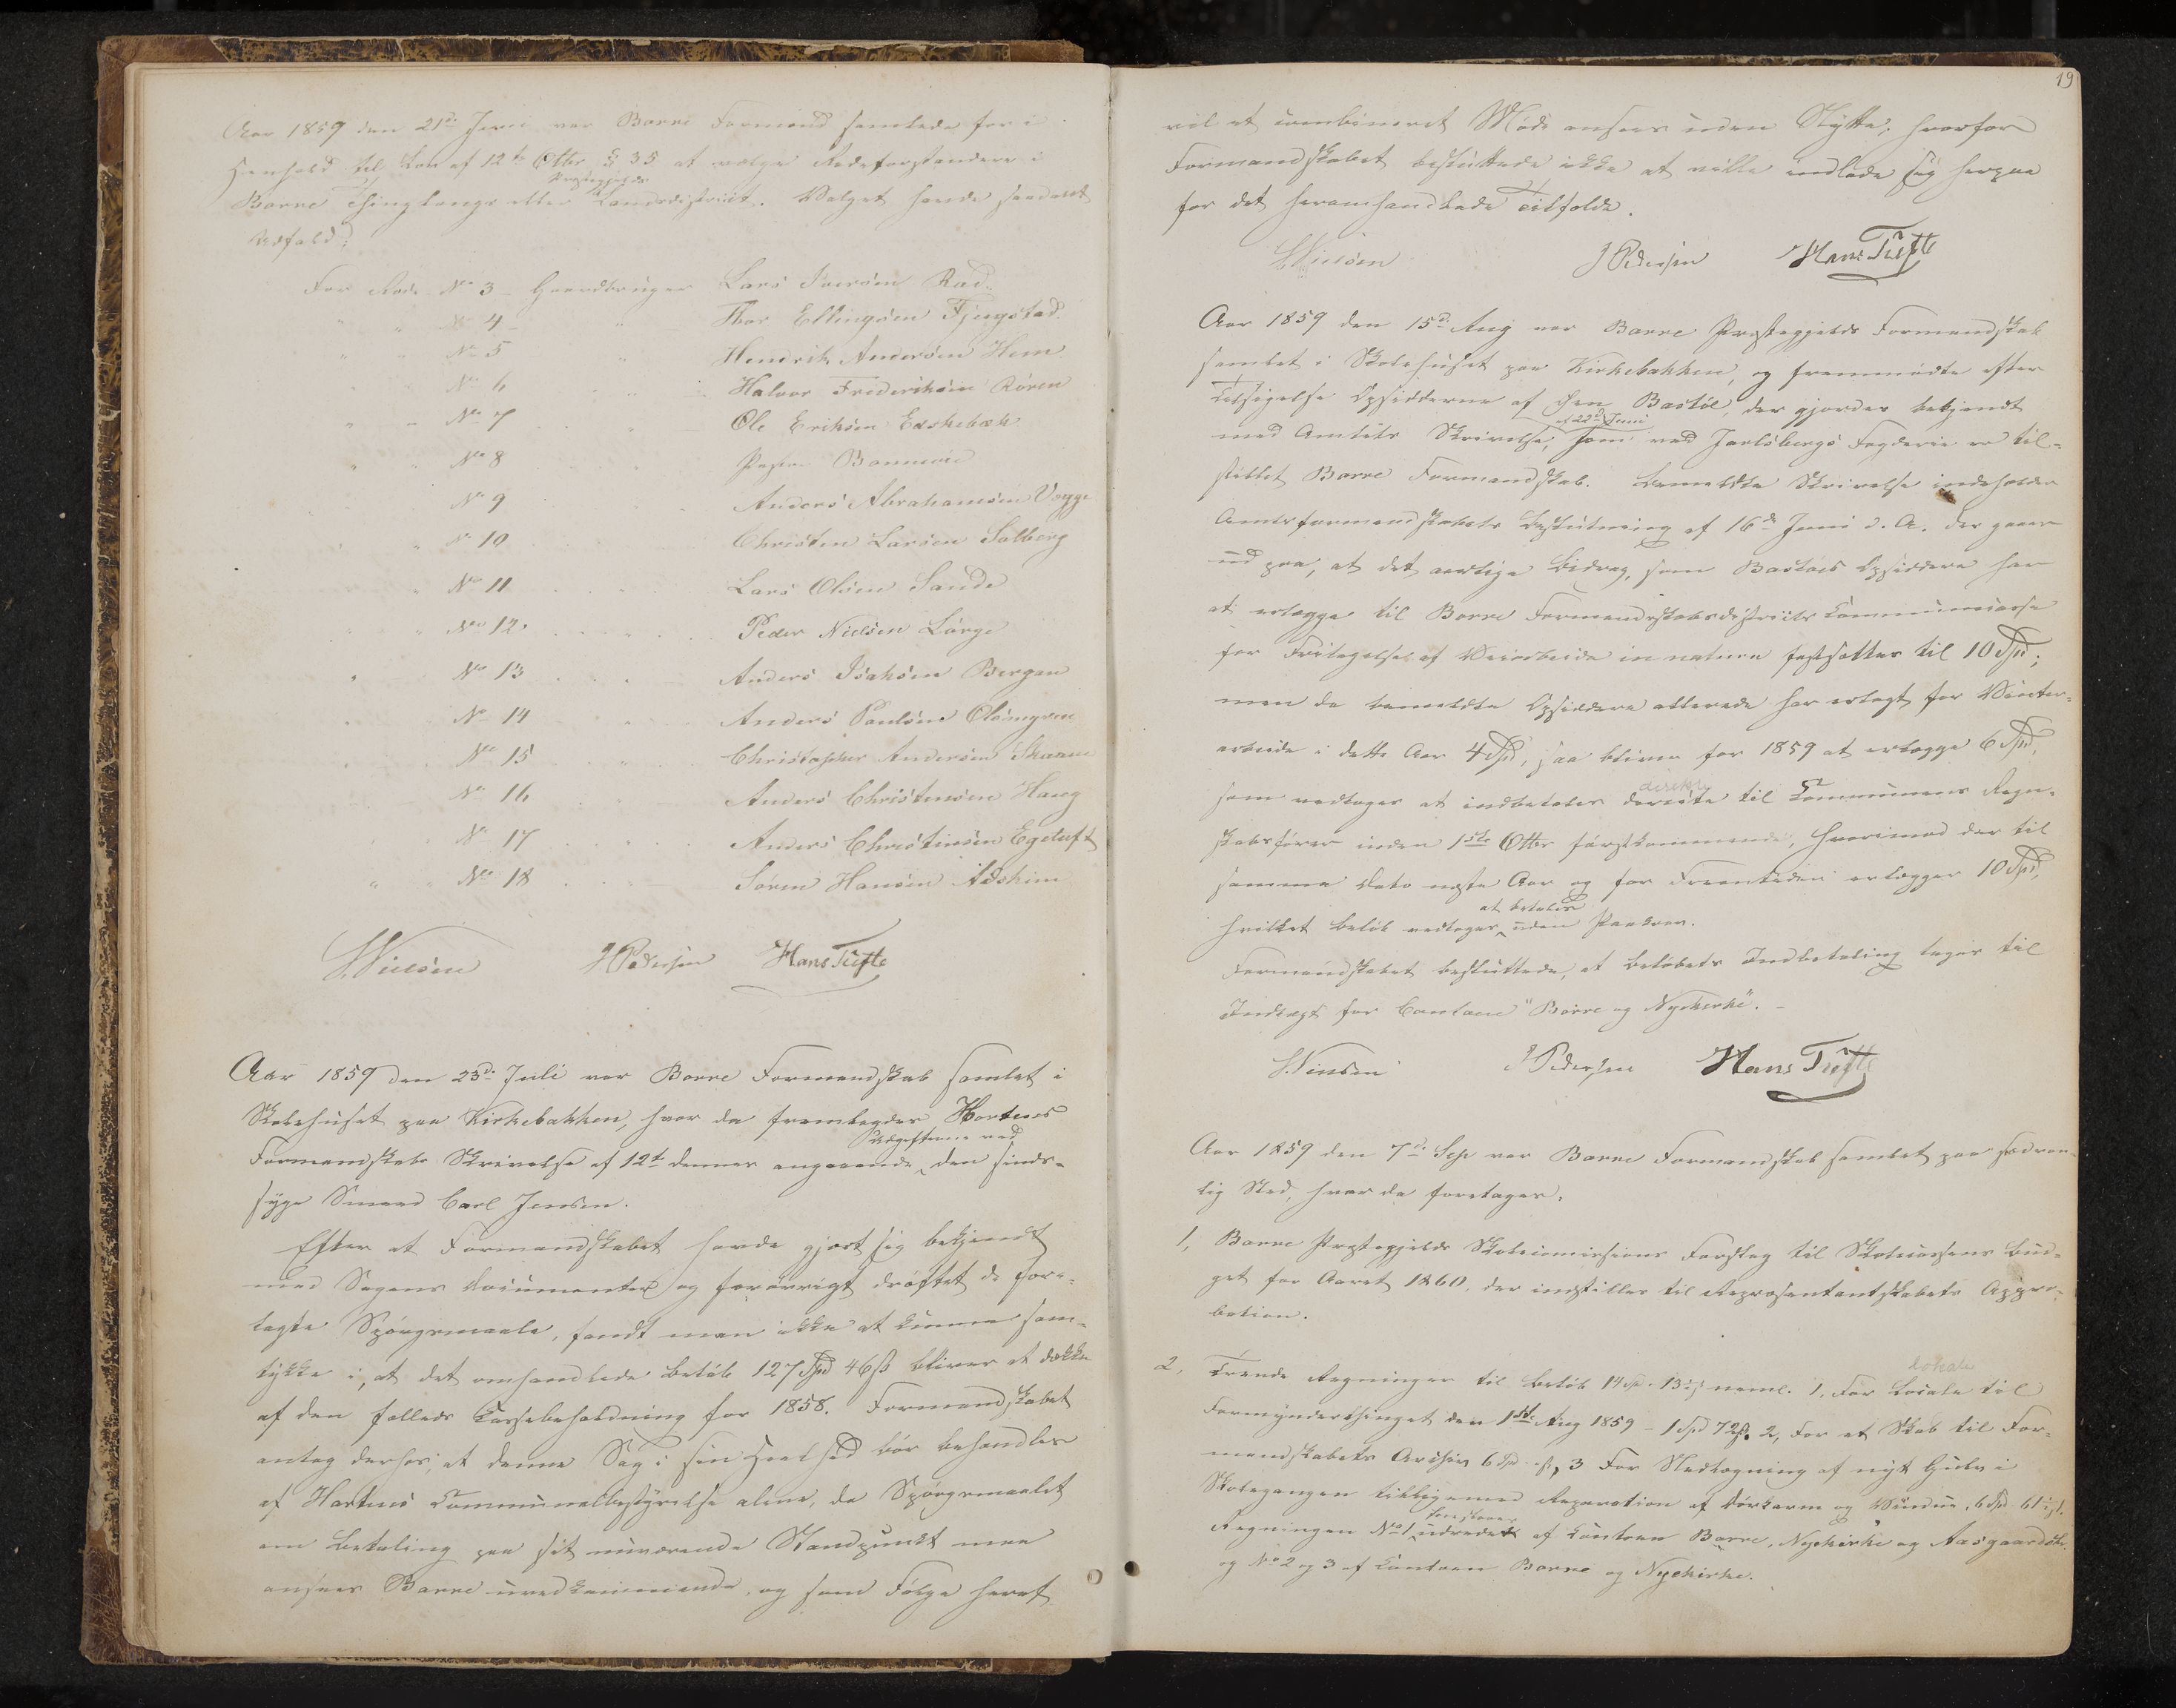 Aar 1859 den 21de Juni var Borre Formænd samlede for i
Henhold til Lov af 12te Octbr § 35 at vælge Rodeforstandere i
Præstegjelds
Borre Thinglaugs eller Landdistrict. Valget havde saadant
Udfald:
For Rode No 3 - Gaardbruger Lars Iversen Rød.
" " No 4 - " Thor Ellingsen Fjugstad.
" " No 5 " Hendrik Andersen Hem
" " No 6 " Halvor Frederiksen Røren
" " No 7 " Ole Eriksen Eskebæk
" " No 8
No 9 Anders Abrahamsen
" No 10 Christen Larsen Solberg
" No 11 Lars Olsen Sande
" " No 12. " Peder Nielsen Lørge
" No 13 Anders Isaksen Bergan
No 14 " Anders Paulsen Olsmyren
No 15 " Christopher Andersen
No 16 " Anders Christensen Haug
No 17 Anders Christensen Egetuft
" " No 18 Søren Hansen Adskim
Nielsen JPedersen Hans Tufte
Aar 1859 den 23de Juli var Borre Formandskab samlet i
Skolehuset paa Kirkebakken, hvor da fremlagdes Hortens
Udgifterne ved
Formandskabs Skrivelse af 12te dennes angaaende den sinds-
syge Smed Carl Jensen.
Efter at Formandskabet havde gjort sig bekjendt
med Sagens Documenter og forøvrigt drøftet de fore-
lagte Spørgsmaale, fandt man ikke at kunne sam-
tykke i, at det omhandlede Beløb 127 Spd 46 ß bliver at dække
af den fælleds Kassebeholdning for 1858. Formandskabet
antog derhos, at denne Sag i sin Heelhed bør behandles
af Hortens Communalbestyrelse alene, da Spørgsmaalet
om Betaling paa sit nuværende Standpunkt maa
ansees Borre uvedkommende, og som Følge heraf
19
vil et combineret Møde ansees uden Nytte, hvorfor
Formandskabet besluttede ikke at ville indlade sig herpaa
for det heromhandlede Tilfælde.
Nielsen JPedersen Hans Tufte
Aar 1859 den 15de Aug var Borre Præstegjelds Formandskab
samlet i Skolehuset paa Kirkebakken, og fremmødte efter
Tilsigelse Opsidderne af Øen Bastøe, der gjordes bekjendt
af 22de Juni
med Amtets Skrivelse, som ved Jarlsbergs Fogderie er til-
stillet Borre Formandskab. Bemeldte Skrivelse indeholder
Amtsformandskabets Beslutning af 16de Juni d. A. der gaaer
ud paa, at det aarlige Bidrag, som Bastøes Opsiddere har
at erlægge til Borre Formandskabsdistricts Communecasse
for Fritagelse af Veiarbeide in natura fastsættes til 10 Spd;
men da bemeldte Opsiddere allerede har erlagt for Vinter-
arbeide i dette Aar 4 Spd, saa bliver for 1859 at erlægge 6 Spd,
direkte
som vedtoges at indbetales directe til Communens Regn-
skabsfører inden 1ste Octbr førstkommende, hvorimod der til
samme Dato næste Aar og for Fremtiden erlægges 10 Spd,
at betales
hvilket Beløb vedtoges uden Paakrav.
Formandskabet besluttede, at Beløbets Indbetaling tages til
Indtægt for Contoen "Borre og Nyekirke". -
Nielsen JPedersen Hans Tufte
Aar 1859 den 7de Sep var Borre Formandskab samlet paa sædvan-
lig Sted, hvor da foretages:
1, Borre Præstegjelds Skolecomissions Forslag til Skolecassens Bud-
get for Aaret 1860, der indstilles til Repræsentantskabets Appro-
bation.
lokale
2, Trende Regninger til Beløb 14 Spd. 13½ ß neml. 1, For Locale til
Formynderthinget den 1ste Aug 1859 - 1 Spd 72 ß. 2, For et Skab til For-
mandskabets Archiv 6 Spd ß, 3 For Nedlægning af nyt Gulv i
Skolegangen tilligemed Reparation af Dørkarm og Vindue, 6 Spd 61½ ß.
Regningen No 1 udredes af Contoen Borre, Nyekirke og Aasgaardstr.
og No 2 og 3 af Contoen Borre og Nyekirke.